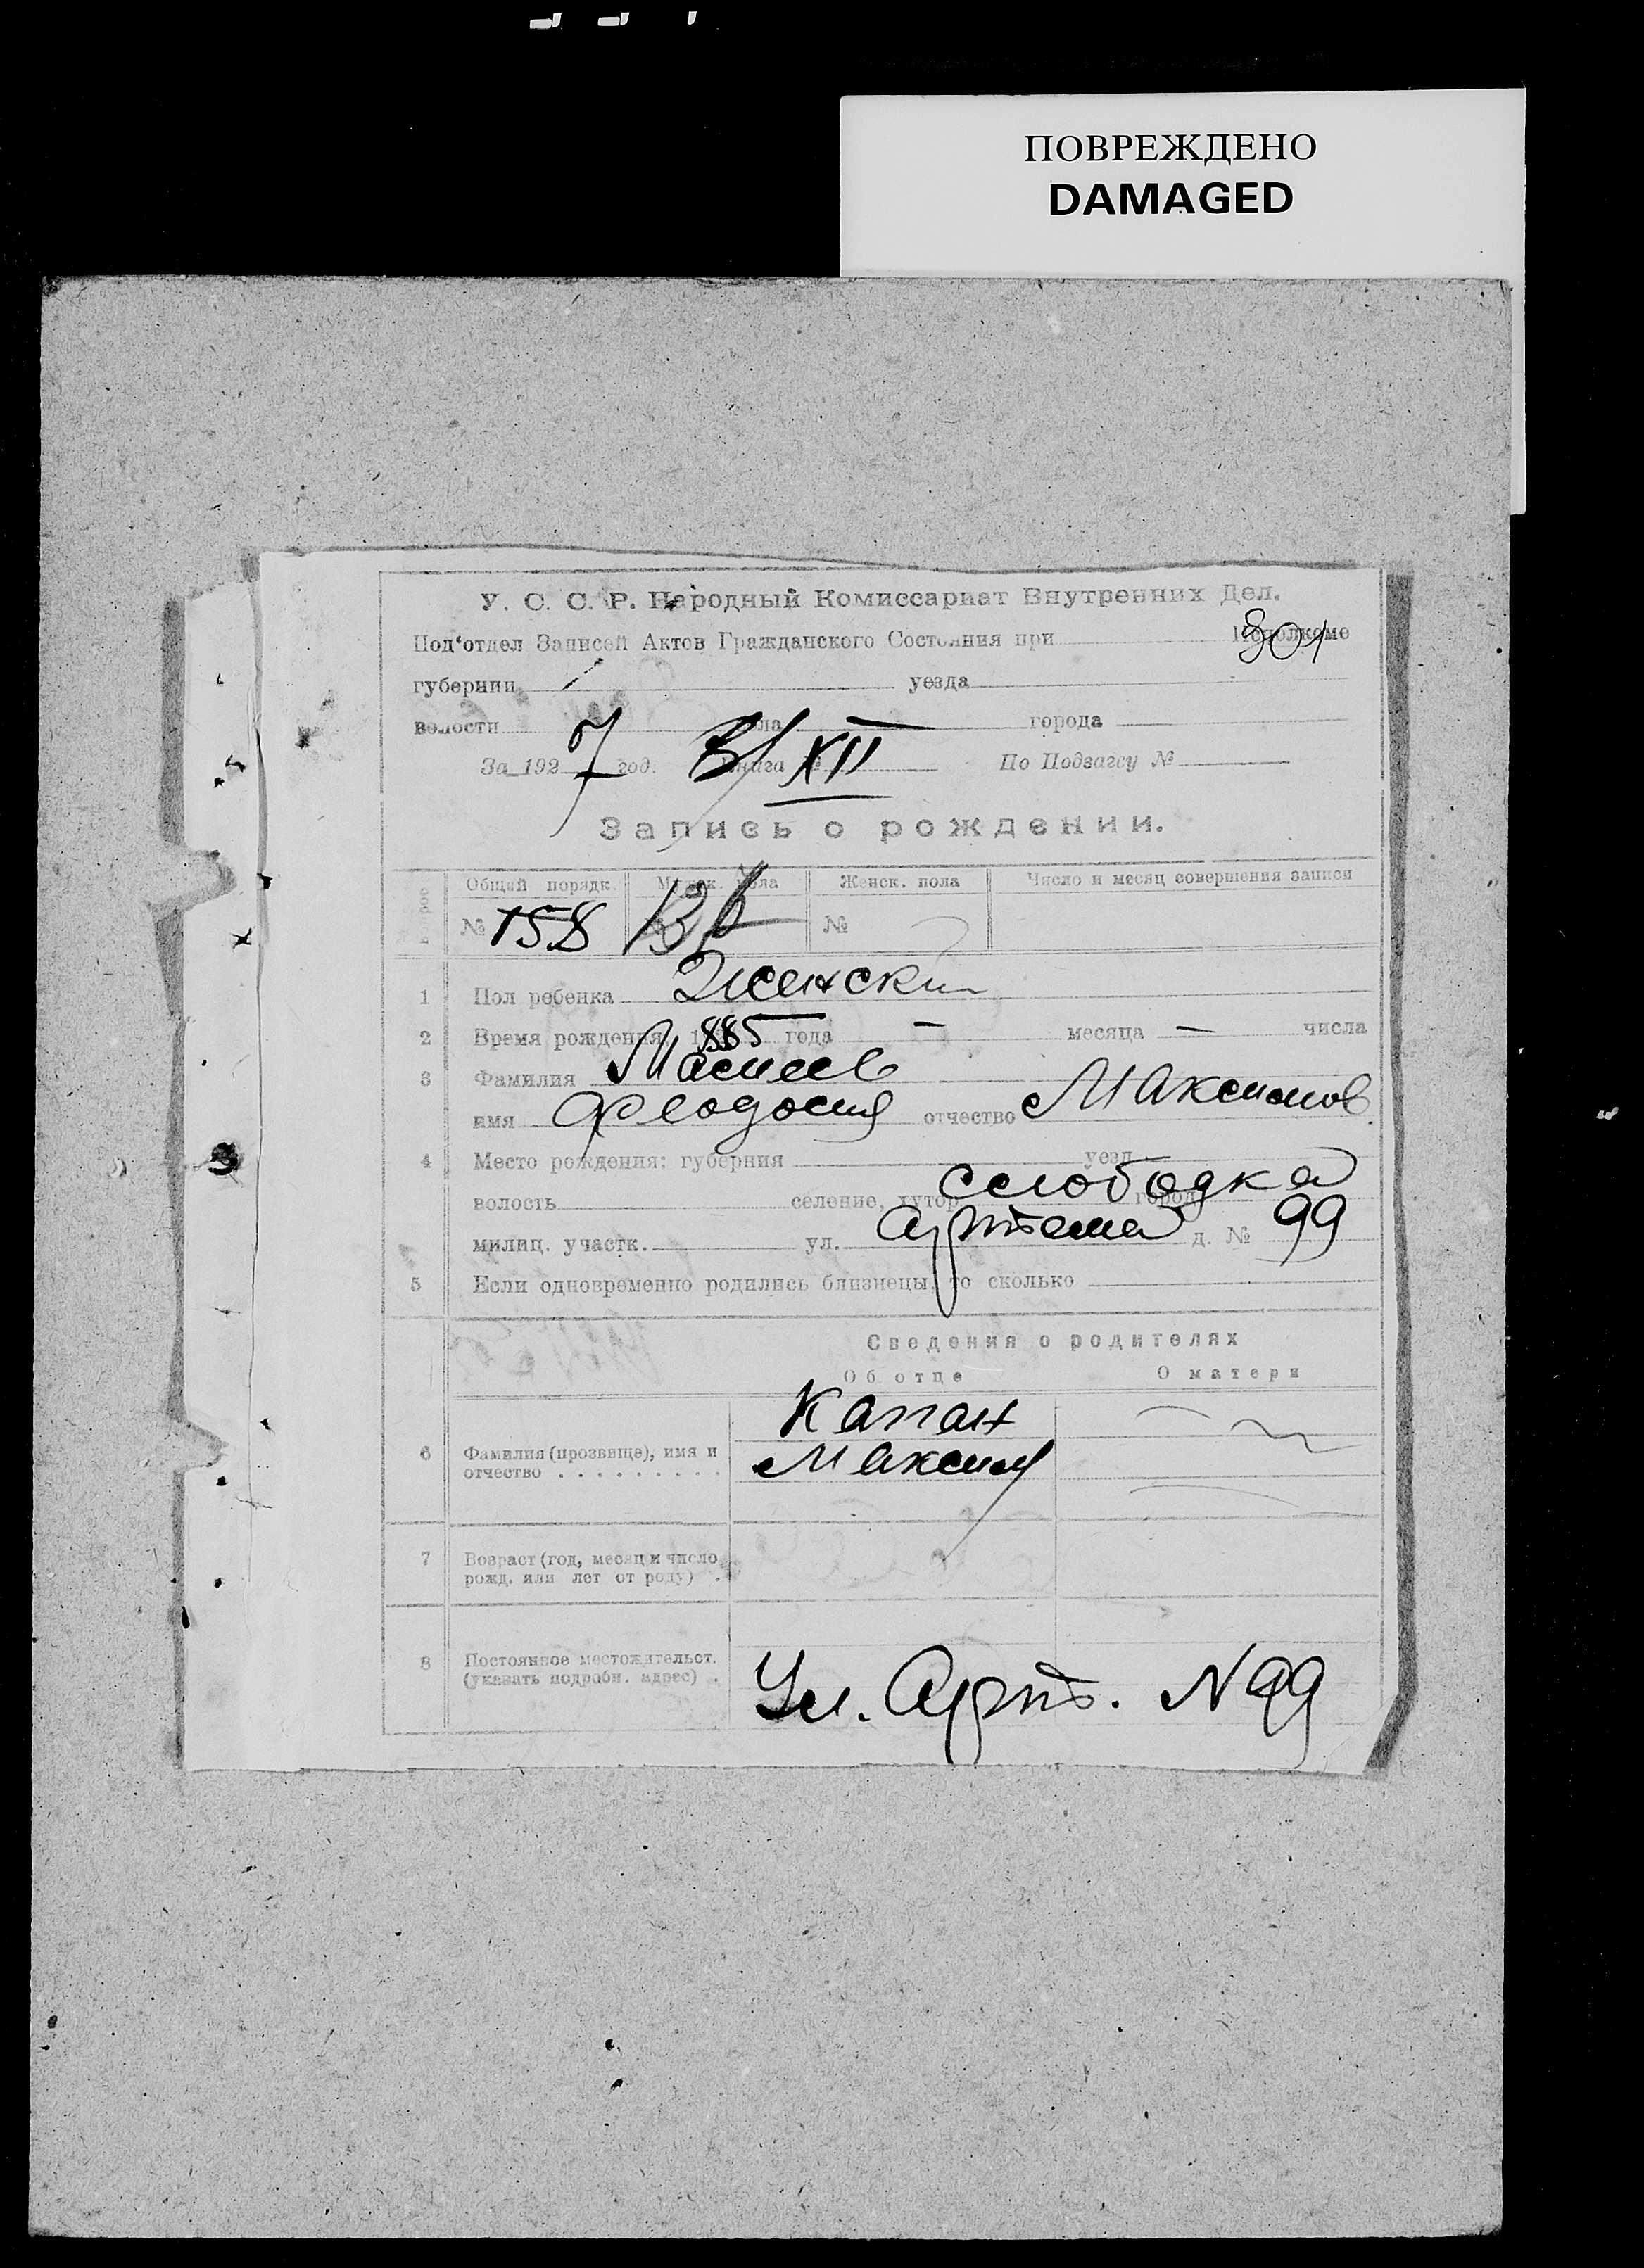 ПОВРЕЖДЕНО
DAMAGED
У. С. С. Р. Народный Комиссариат Внутренних Дел.
Под'отдел Записей Актов Гражданского Состояния при Исполкоме 801
губернии уезда
волости города
За 1927 год. 3/XII Книга № По Подзагсу №
Запись о рождении.
Общий порядк. Мужск. пола Женск. пола Число и месяц совершения записи
№ 158 №
1 Пол ребенка Женский
2 Время рождения 1885 года — месяца — числа
3 Фамилия
имя Феодосия отчество Максимов
4 Место рождения: губерния уезд
волость селение, хутор город слободка
милиц. участк. ул. Артема д. № 99
5 Если одновременно родились близнецы, то сколько
Сведения о родителях
Об отце О матери
Капан
6 Фамилия (прозвище), имя и
отчество . . . . . . . . . Максим
7 Возраст (год, месяц и число
рожд. или лет от роду) .
8 Постоянное местожительст.
(указать подробн. адрес) . Ул. Арт. N 99